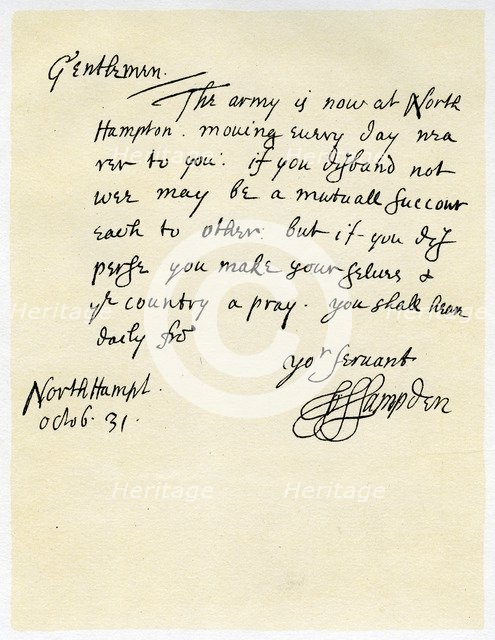 Gentlemen.
The army is now at North
Hampton. moving euery day nea
rer to you: if you disband not
wee may be a mutuall succour
each to other: but if you dis
perse you make your selues &
yr country a pray. you shall hear
daily fro
yor servant
Hampden
North Hampt.
octob. 31.
Heritage
Heritage
Heritage
Heritage
Heritage
Heritage
©